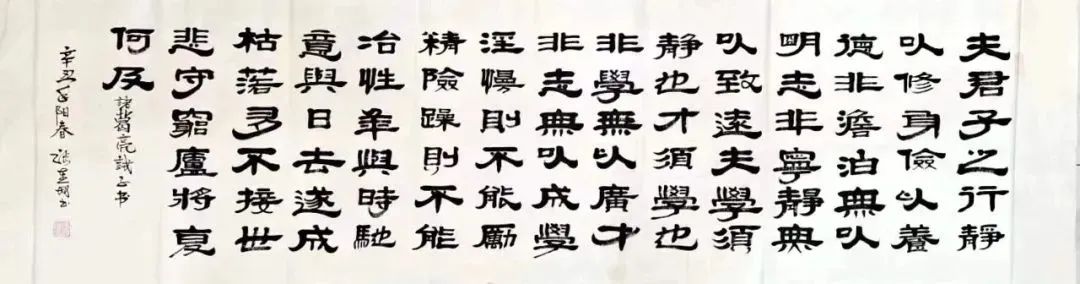 夫君子之行靜
以修身儉以養
德非澹泊無以
明志非寧靜無
以致遠夫學須
靜也才須學也
非學無以廣才
非志無以成學
淫慢則不能勵
精險躁則不能
冶性年與時馳
意與日去遂成
枯落多不接世
悲守窮廬將复
何及
諸葛亮誡子书
辛丑年阳春